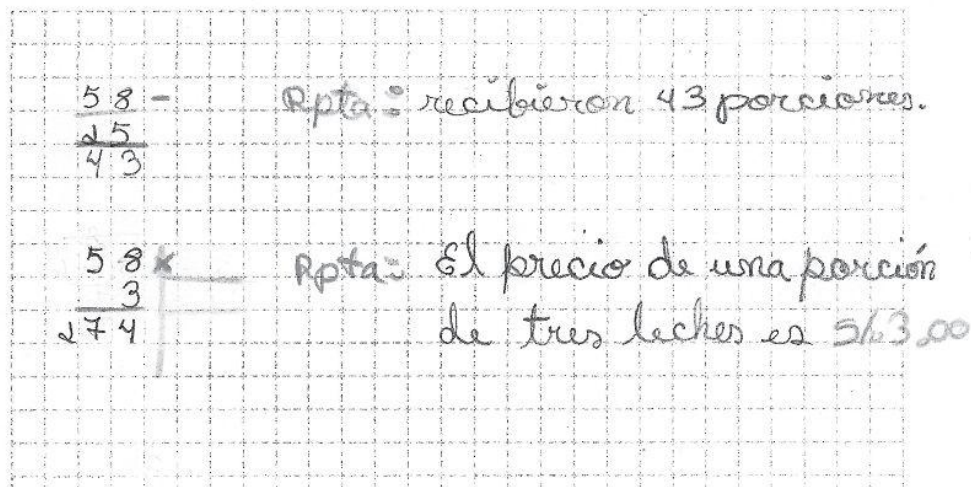 58 - Rpta: recibieron 43 porciones.
25
43
58 x Rpta: El precio de una porción
3 de tres leches es S/.3.00
274